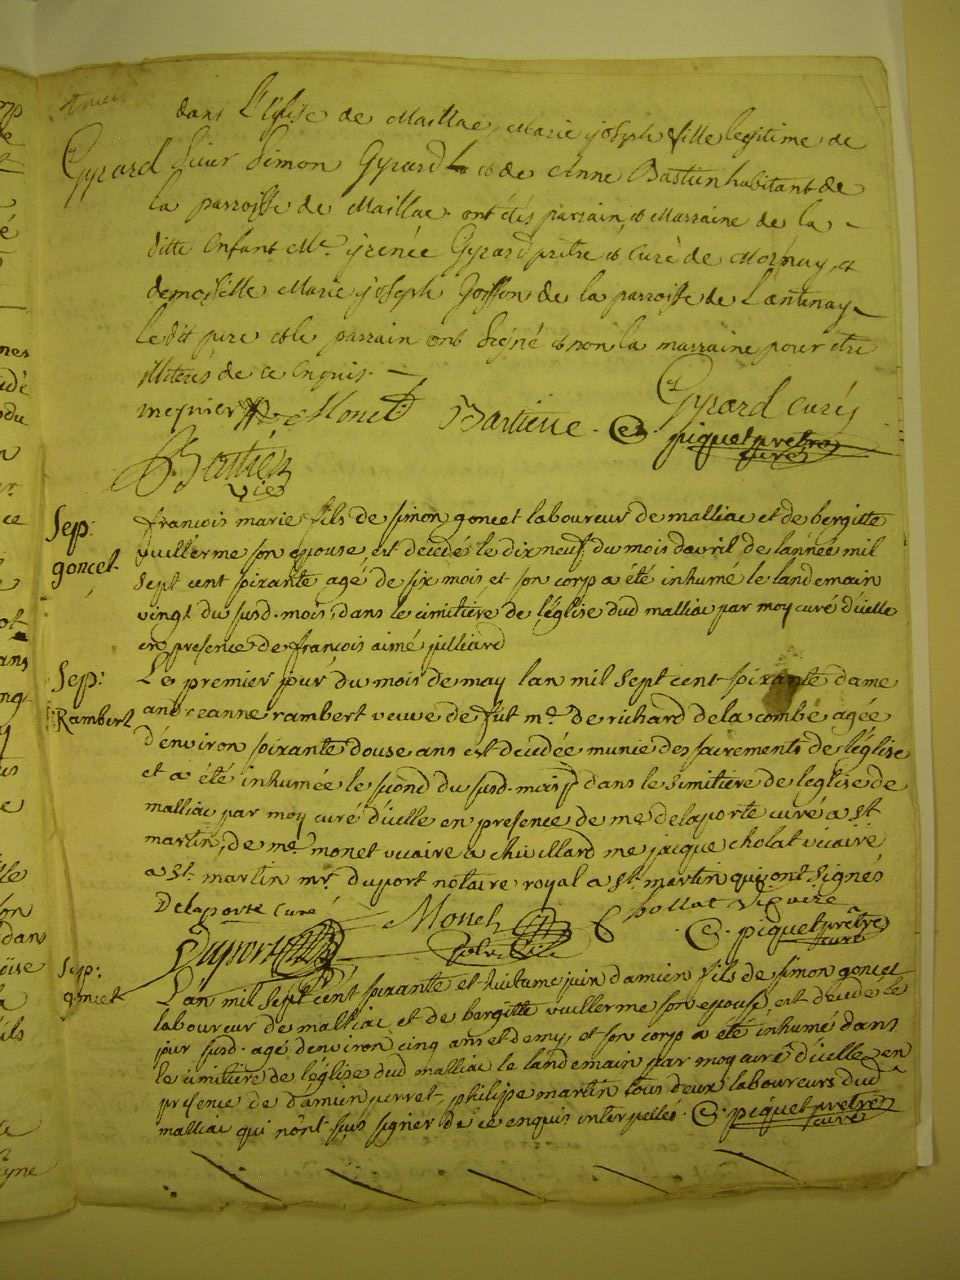 dans L'Eglise de Maillac, Marie joseph fille legitime de
Gyrard
Sieur Simon Gyrard & de Anne Bastien habitant de
la parroisse de Maillac. ont étés parrain & Marraine de la
ditte Enfant Mre. yrenée Gyrard prêtre & curé de Mornay, et
demoiselle Marie joseph Goiffon de la parroisse de Lantenay
le dit pere & le parrain ont signé & non la marraine pour être
illiteres de ce Enquis.
meynier Monet Bastiene Gyrard curés
C. piquet pretre
curé
Bastien
Sep:
goncet
francois marie fils de simon goncet laboureur de malliac et de bergitte
vuillerme son epouse, est decedés le dix neuf du mois davril de lannée mil
sept cent soixante agé de six mois et son corp a été inhumé le landemain
vingt du susd. mois, dans le cimitiére de léglise dud malliac par moy curé d'icelle
en presence de francois aimé julliard
Sep:
Rambert
Le premier jour du mois de may lan mil sept cent soixante dame
andreanne rambert veuve de fut mr. de richard de la combe agée
d'environ soixante douse ans est decedée munie des sacrements de léglise
et a été inhumée le second du susd. mois dans le simitiere de leglise de
malliac par moy curé d'icelle en presence de mre delaporte curé a st
martin, de mre monet vicaire a chevillard me jacque cholat vicaire
a st. martin mr. duport notaire royal a st. martin qui ont signés
Delaporte Curé Monet Chollat vicaire
Duport C. piquet prêtre
curé
Sep:
goncet
L'an mil sept cent soixante et huitieme juin damien fils de simon goncet
laboureur de malliac et de bergitte vuillerme son epouse, est decedé le
jour susd. agé denviron cinq ans et demy, et son corp a été inhumé dans
le cimitiére de léglise dud malliac le landemain par moy curé d'icelle en
presence de damien perret, philipe martin tous deux laboureurs dud
malliac qui n'ont sus signer de ce enquis interpellés. C. piquet pretre
curé